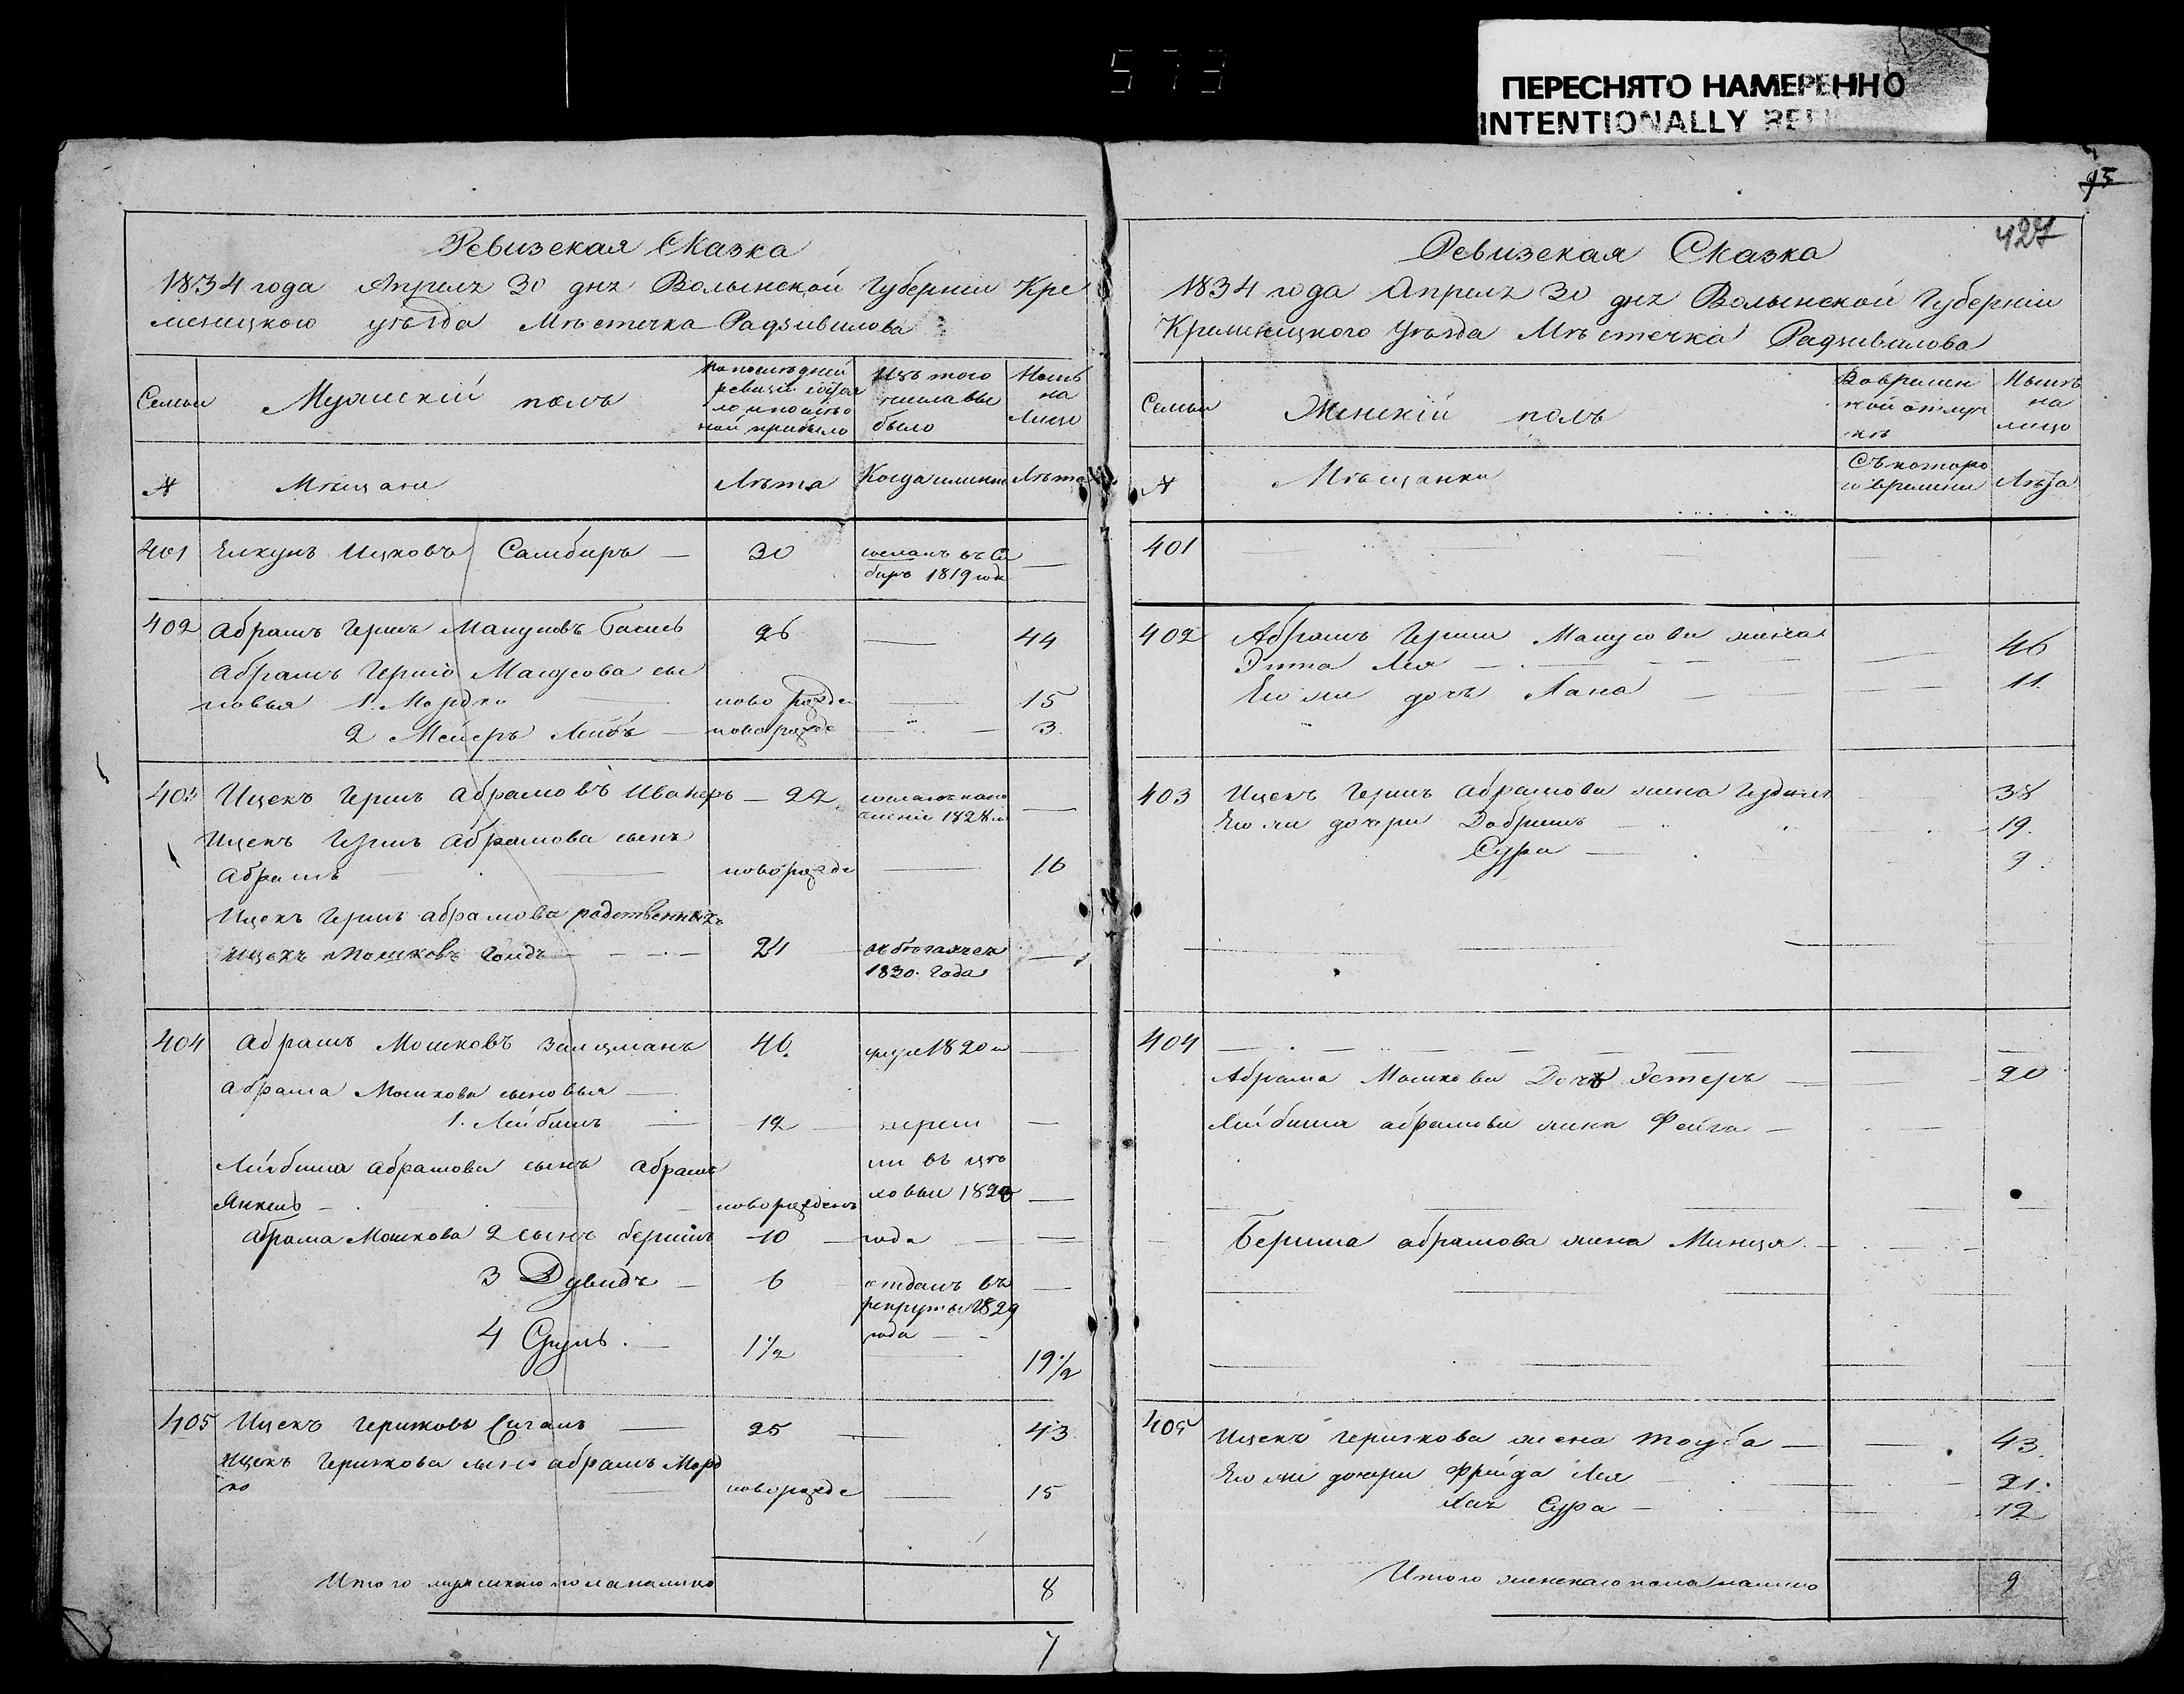 573
ПЕРЕСНЯТО НАМЕРЕННО
INTENTIONALLY
15
427
Ревизская Сказка
1834 года Апреля 30 дня Волынской Губернии Кре
менецкого уѣзда Мѣстечка Радзивилова
Семьи
Мужескій полъ
по последней
ревизіи состоя
ло и после о
ной прибыло
Изъ того
числа вы
было
Нынѣ
на
Лицо
№
Мѣщане
Лѣта
Когда именно
Лѣта
401 Елкунъ Ицковъ Самбиръ — 30 сосланъ въ Си —
бирь 1819 года
402 Абрамъ Гершъ Манусовъ Басисъ 26 — 44
Абрамъ Герша Манусова сы
новья 1. Мордко — ново рожде — 15
2 Мейеръ Лейбъ — ново рожде — 3
403 Ицекъ Гершъ Абрамовъ Иванеръ — 22 —
1828
Ицекъ Гершъ Абрамова сынъ
Абрамъ — новорожде — 16
Ицекъ Гершъ Абрамова родственникъ
Ицекъ Мошковъ — 24 —
1830. Года
404 Абрамъ Мошковъ Залцманъ 46. умре 1820 го —
Абрама Мошкова сыновья —
1. Лейбишъ — 12 — переш —
Лейбиша Абрамова сынъ Абрамъ ли въ цѣ
Янкель — новорожденъ ховыи 1820 —
Абрама Мошкова 2 сынъ Беришъ 10 — года —
3 Дувидъ — 6 отданъ въ —
рекруты 1829
4 Сруль. — 1 1/2 года —
19 1/2
405 Ицекъ Гершковъ Сигалъ — 25 — 43
Ицекъ Гершкова сынъ Абрамъ Морд
ко — новорожде — 15
Итого мужескаго пола налицо 8
7
Ревизская Сказка
1834 года Апреля 30 дня Волынской Губерніи
Кременецкого Уѣзда Мѣстечка Радзивилова
Семьи
Женскій полъ
Вовремен
ной отлуч
кѣ
Нынѣ
на
лицо
№
Мѣщанки
Съ которо
го времени
Лѣта
401
402 Абрамъ Герша Манусова жена
Этта Лея — 46
Его же дочь Хана — 11.
403 Ицекъ Гершъ Абрамова жена 38
Его же дочери Добришъ — 19.
Сура — 9.
404
Абрама Мошкова Дочь Эстеръ — 20
Лейбиша Абрамова жена Фейга —
Бериша Абрамова жена Минця. —
405 Ицекъ Гершкова жена Тауба — 43.
Его же дочери Фрейда Лея 21.
Хая Сура — 12
Итого женскаго пола налицо 9